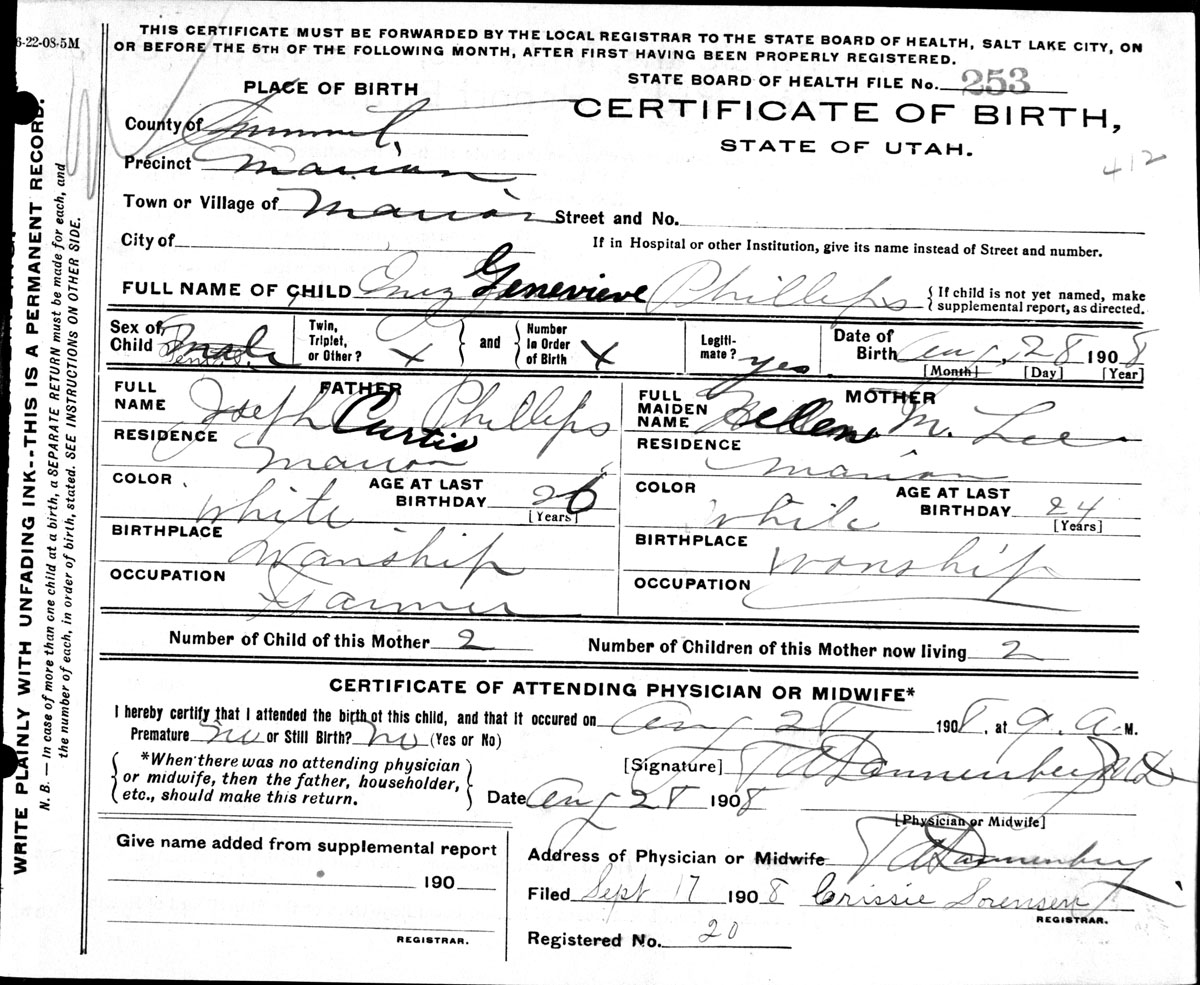 6-22-08-5M
THIS CERTIFICATE MUST BE FORWARDED BY THE LOCAL REGISTRAR TO THE STATE BOARD OF HEALTH, SALT LAKE CITY, ON
OR BEFORE THE 5TH OF THE FOLLOWING MONTH, AFTER FIRST HAVING BEEN PROPERLY REGISTERED.
STATE BOARD OF HEALTH FILE No. 253
PLACE OF BIRTH
CERTIFICATE OF BIRTH,
STATE OF UTAH.
412
County of Summit
Precinct Marion
Town or Village of Marion Street and No.
City of If in Hospital or other Institution, give its name instead of Street and number.
FULL NAME OF CHILD Inez Genevieve Phillips { If child is not yet named, make supplemental report, as directed.
Sex of Child Male Female Twin, Triplet, or Other? X } and { Number In Order of Birth X Legitimate? yes Date of Birth Aug, 28 1908
[Month] [Day] [Year]
FATHER MOTHER
FULL NAME Joseph Curtis Phillips FULL MAIDEN NAME Hellena M. Lee
RESIDENCE Marion RESIDENCE Marion
COLOR White AGE AT LAST BIRTHDAY 26 [Years] COLOR White AGE AT LAST BIRTHDAY 24 [Years]
BIRTHPLACE Wanship BIRTHPLACE Wanship
OCCUPATION Farmer OCCUPATION
Number of Child of this Mother 2 Number of Children of this Mother now living 2
CERTIFICATE OF ATTENDING PHYSICIAN OR MIDWIFE*
I hereby certify that I attended the birth of this child, and that it occured on Aug 28 1908, at 9. A. M.
Premature No or Still Birth? No (Yes or No)
{ *When there was no attending physician or midwife, then the father, householder, etc., should make this return. }
[Signature] T A Dannenberg MD
Date Aug 28 1908
[Physician or Midwife]
Give name added from supplemental report
190
REGISTRAR.
Address of Physician or Midwife T A Dannenberg
Filed Sept 17 1908 Crissie Sorensen
REGISTRAR.
Registered No. 20
WRITE PLAINLY WITH UNFADING INK--THIS IS A PERMANENT RECORD.
N. B. — In case of more than one child at a birth, a SEPARATE RETURN must be made for each, and
the number of each, in order of birth, stated. SEE INSTRUCTIONS ON OTHER SIDE.